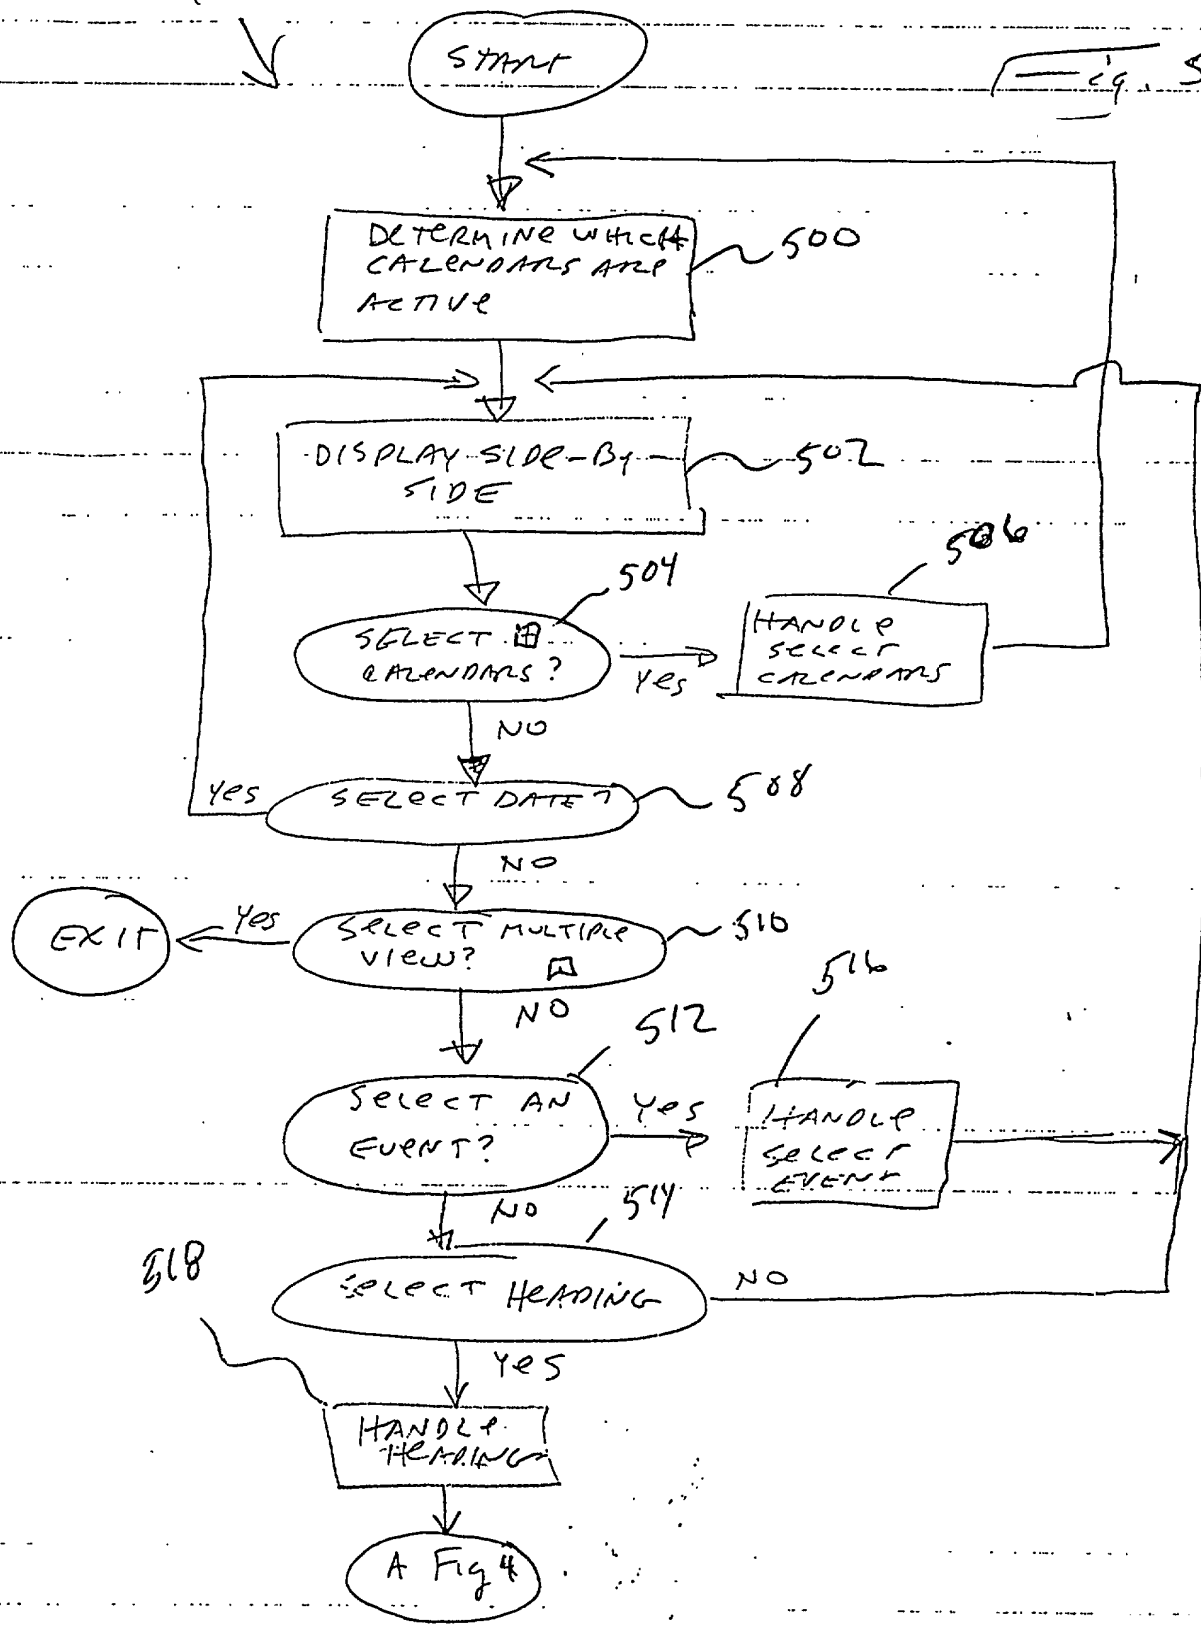 START
Fig. 5
DETERMINE WHICH
CALENDARS ARE
ACTIVE
500
DISPLAY SIDE-By-
SIDE
502
504
506
SELECT
CALENDARS?
Yes
HANDLE
SELECT
CALENDARS
NO
Yes
SELECT DATE?
508
NO
EXIT
Yes
SELECT MULTIPLE
VIEW?
510
NO
512
516
SELECT AN
EVENT?
Yes
HANDLE
SELECT
EVENT
NO
514
518
SELECT HEADING
NO
Yes
HANDLE
HEADING
A Fig 4